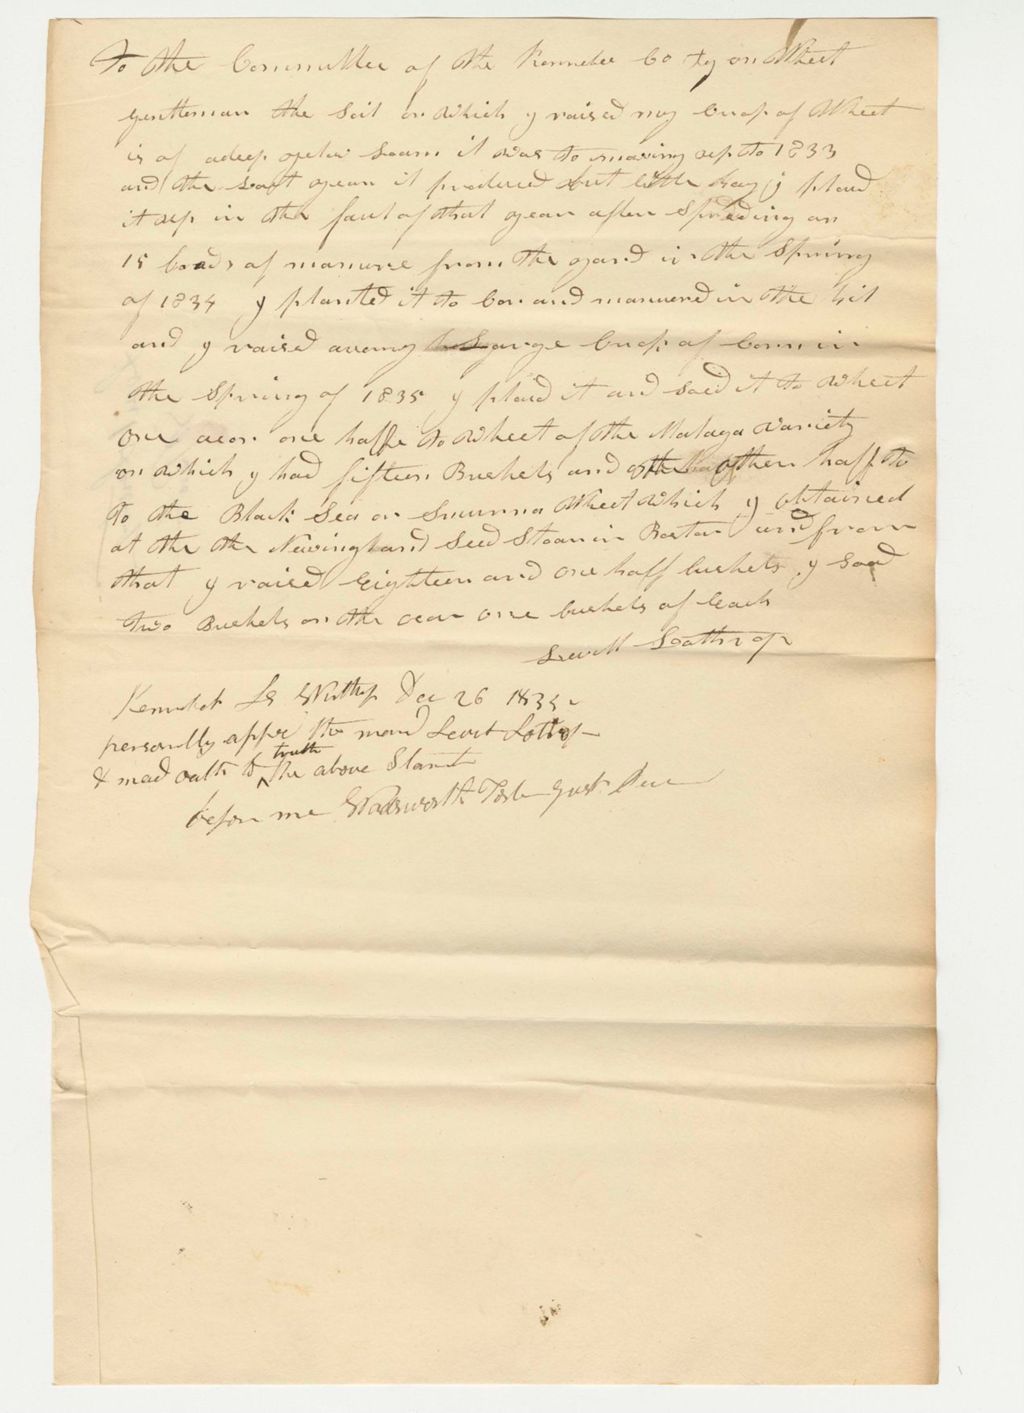 To the Committee of the Kennebec Co on Wheat
gentleman the Soil on which y raised my Crop of Wheet
is of adeep yelow Loam it was to mowing up to 1833
and the Last year it produced but little hay y plowd
it up in the faul of that year after Spreding on
15 Loads of manure from the yard in the Spring
of 1834 y planted it to Corn and manuered in the hil
and y raised avery Large Crop of Corn in
the Spring of 1835 y plowd it and it to Wheet
one acor one halfe to Wheet of the Malaga variety
on which y had fifteen Bushels and the other half to
to the Black Sea or Smurna Wheet which y obtained
at the the Newingland Seed Stoar in Boston and from
that y raised Eighteen and one half bushels y
two Bushels on the acor one bushels of Each
Lothrop
Kennebec Ss Winthrop Dec 26 1835
personally the
& mad oath to the truth above
before me Wadsworth